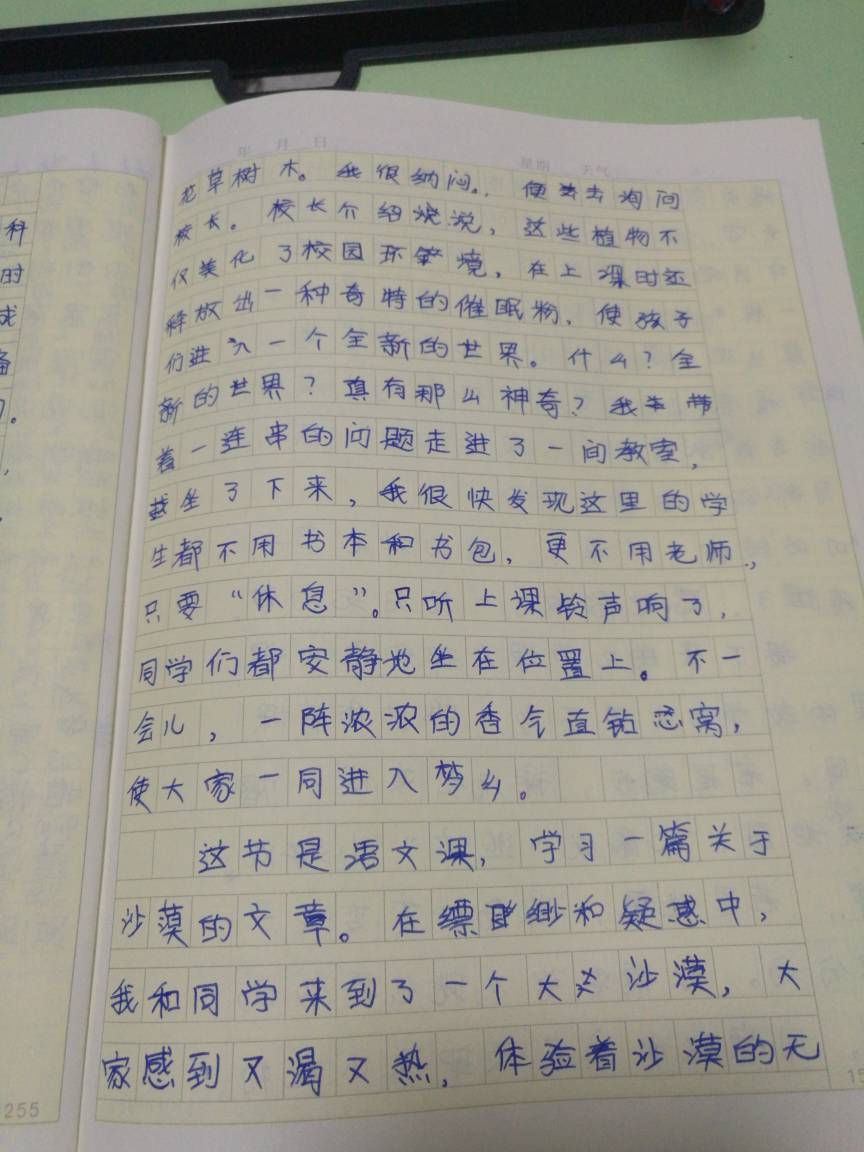 年 月 日 星期 天气
花草树木。我很纳闷。，便去询问
校长。校长介绍说，这些植物不
仅美化了校园环境，在上课时还
释放出一种奇特的催眠物，使孩子
们进入一个全新的世界。什么？全
新的世界？真有那么神奇？我带
着一连串的问题走进了一间教室，
坐了下来，我很快发现这里的学
生都不用书本和书包，更不用老师，
只要“休息”。只听上课铃声响了，
同学们都安静地坐在位置上。不一
会儿，一阵浓浓的香气直钻窝，
使大家一同进入梦乡。
这节是语文课，学习一篇关于
沙漠的文章。在缥缈和疑惑中，
我和同学来到了一个大沙漠，大
家感到又渴又热，体验着沙漠的无
科
时
成
备
。
，
255
15